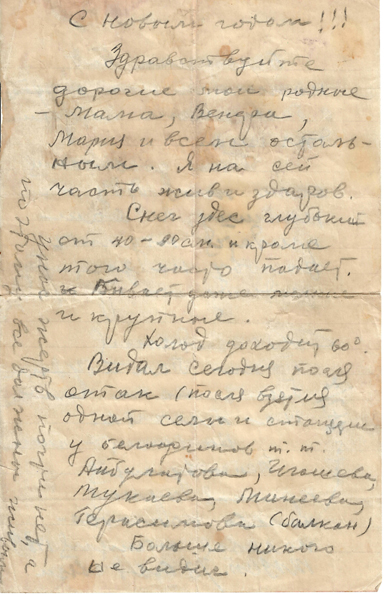 С новым годом!!!
Здравствуйте
дорогие мои родные
- мама, Вендра,
Мария и всем осталь-
ным. Я на сей
часть жив и здоров.
Снег здес глубокий
от 40-90 см. и кроме
того часто падает.
и бывает даже
и крупные.
Холод доходит 60°.
Видал сегодня после
атак (после взятия
одной селы и станции
у белофинов т.т.
Айбулатова, Игошева,
Мукаева, Минеева,
Герасимова (балкан)
Больше никого
не видал.
почти нет, а